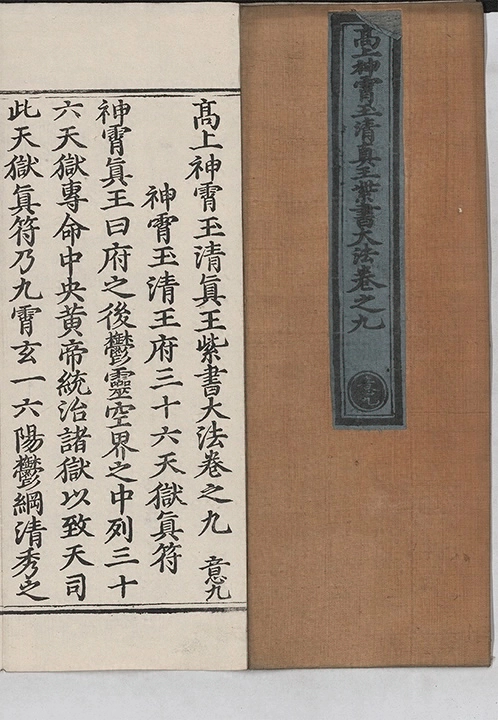 高上神霄玉清眞王紫書大法卷之九
意九
高上神霄玉清眞王紫書大法卷之九 意九
神霄玉清王府三十六天獄眞符
神霄眞王曰府之後鬱靈空界之中列三十
六天獄專命中央黄帝統治諸獄以致天司
此天獄眞符乃九霄玄一六陽鬱綱清秀之